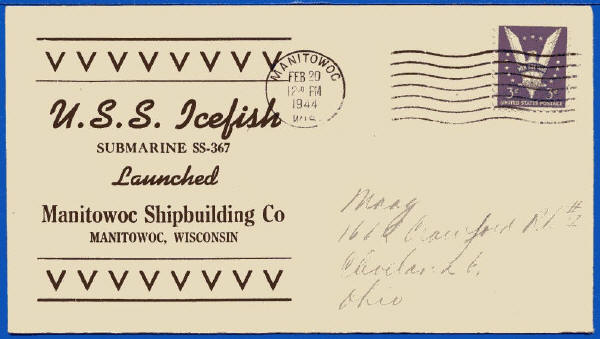 V V V V V V V V
U.S.S. Icefish
SUBMARINE SS-367
Launched
Manitowoc Shipbuilding Co
MANITOWOC, WISCONSIN
V V V V V V V V V
MANITOWOC
FEB 20
12 PM
1944
WIS.
3¢ 3¢
UNITED STATES POSTAGE
Maag
Crawford Rd
Cleveland 6,
Ohio